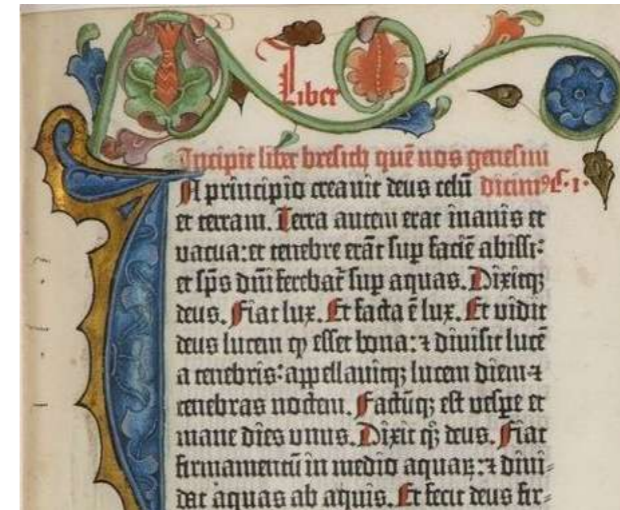 Liber
Incipit liber bresith quē nos genesim
N principio creauit deus celū dicim⁹ C. 1.
et terram. Terra autem erat inanis et
uacua: et tenebre erāt sup faciē abissi:
et sp̄s dn̄i ferebat᷑ sup aquas. Dixitqꝫ
deus. Fiat lux. Et facta ē lux. Et uidit
deus lucem ꝙ esset bona: ⁊ diuisit lucē
a tenebris: appellauitqꝫ lucem diem ⁊
tenebras noctem. Factūqꝫ est uespe et
mane dies unus. Dixit qꝫ deus. Fiat
firmamentū in medio aquaꝝ: ⁊ diui⸗
dat aquas ab aquis. Et fecit deus fir⸗